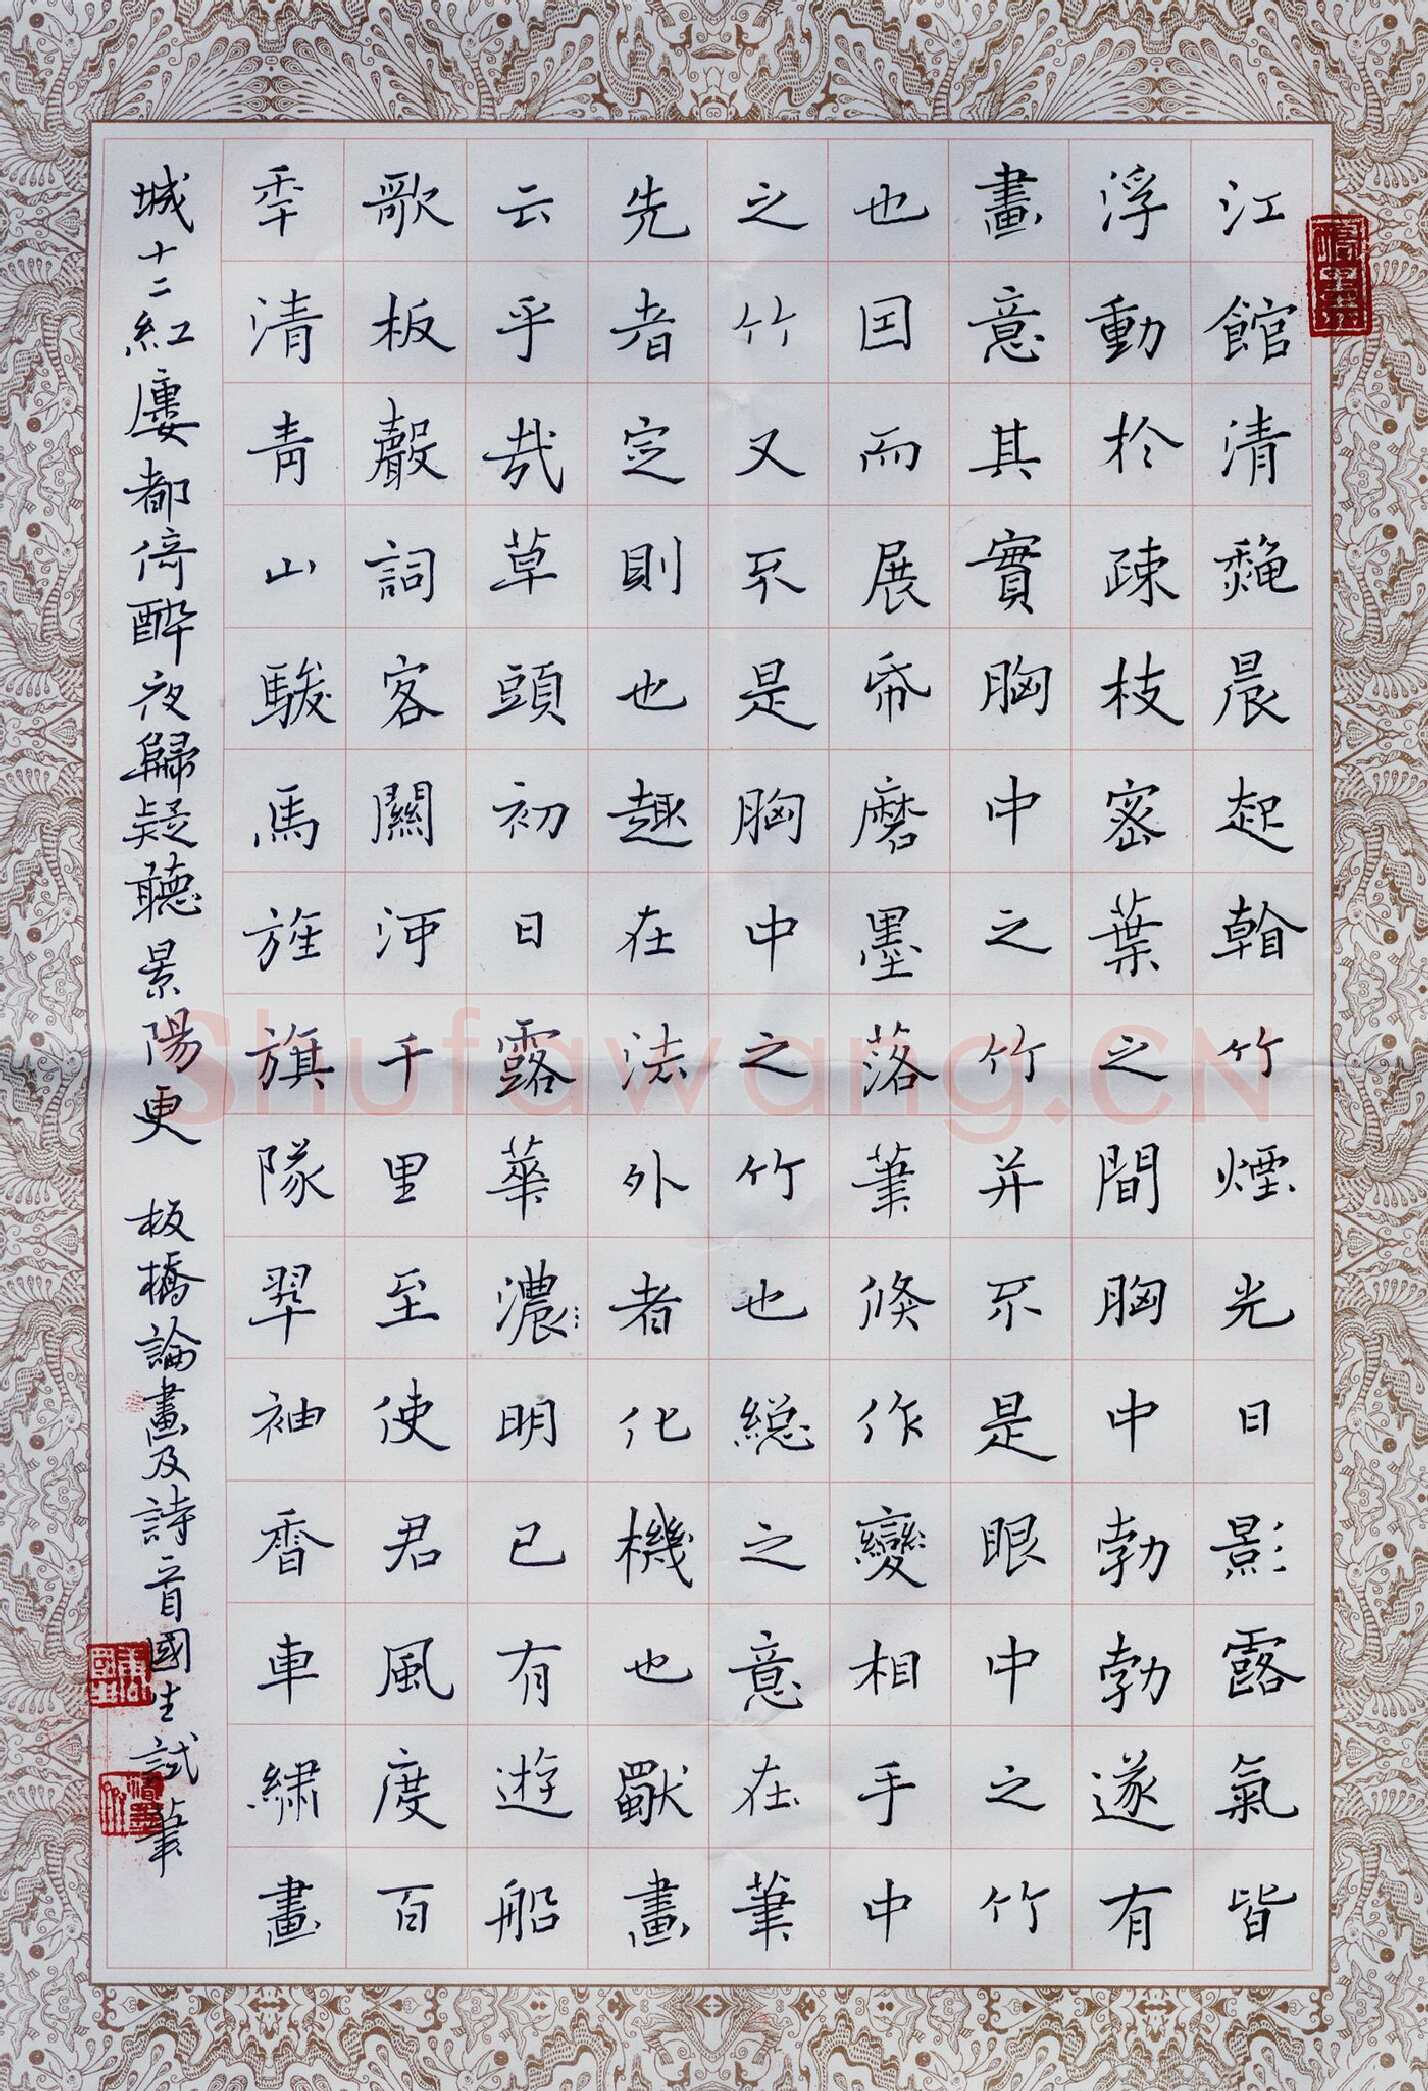 江館清龝晨起看竹煙光日影露氣皆
浮動於疎枝密葉之間胸中勃勃遂有
畫意其實胸中之竹并不是眼中之竹
也囙而展帋磨墨落筆倏作變相手中
之竹又不是胸中之竹也総之意在筆
先者定則也趣在法外者化機也獨畫
云乎哉草頭初日露華濃明已有遊船
歌板聲詞客關河千里至使君風度百
季清青山駿馬旌旗隊翠袖香車繡畫
城十二紅廔都倚醉夜歸疑聽景陽更 板橋論畫及詩一首國生試筆
Shufawang.CN